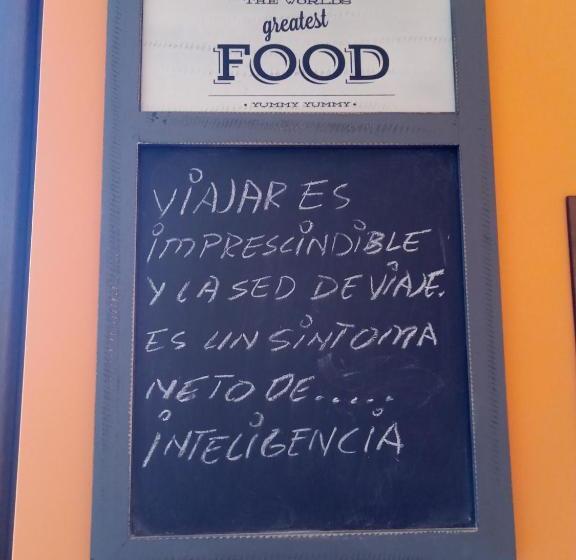 THE WORLDS
greatest
FOOD
• YUMMY YUMMY •
VIAJAR ES
IMPRESCINDIBLE
Y LA SED DE VIAJE.
ES UN SINTOMA
NETO DE.....
INTELIGENCIA